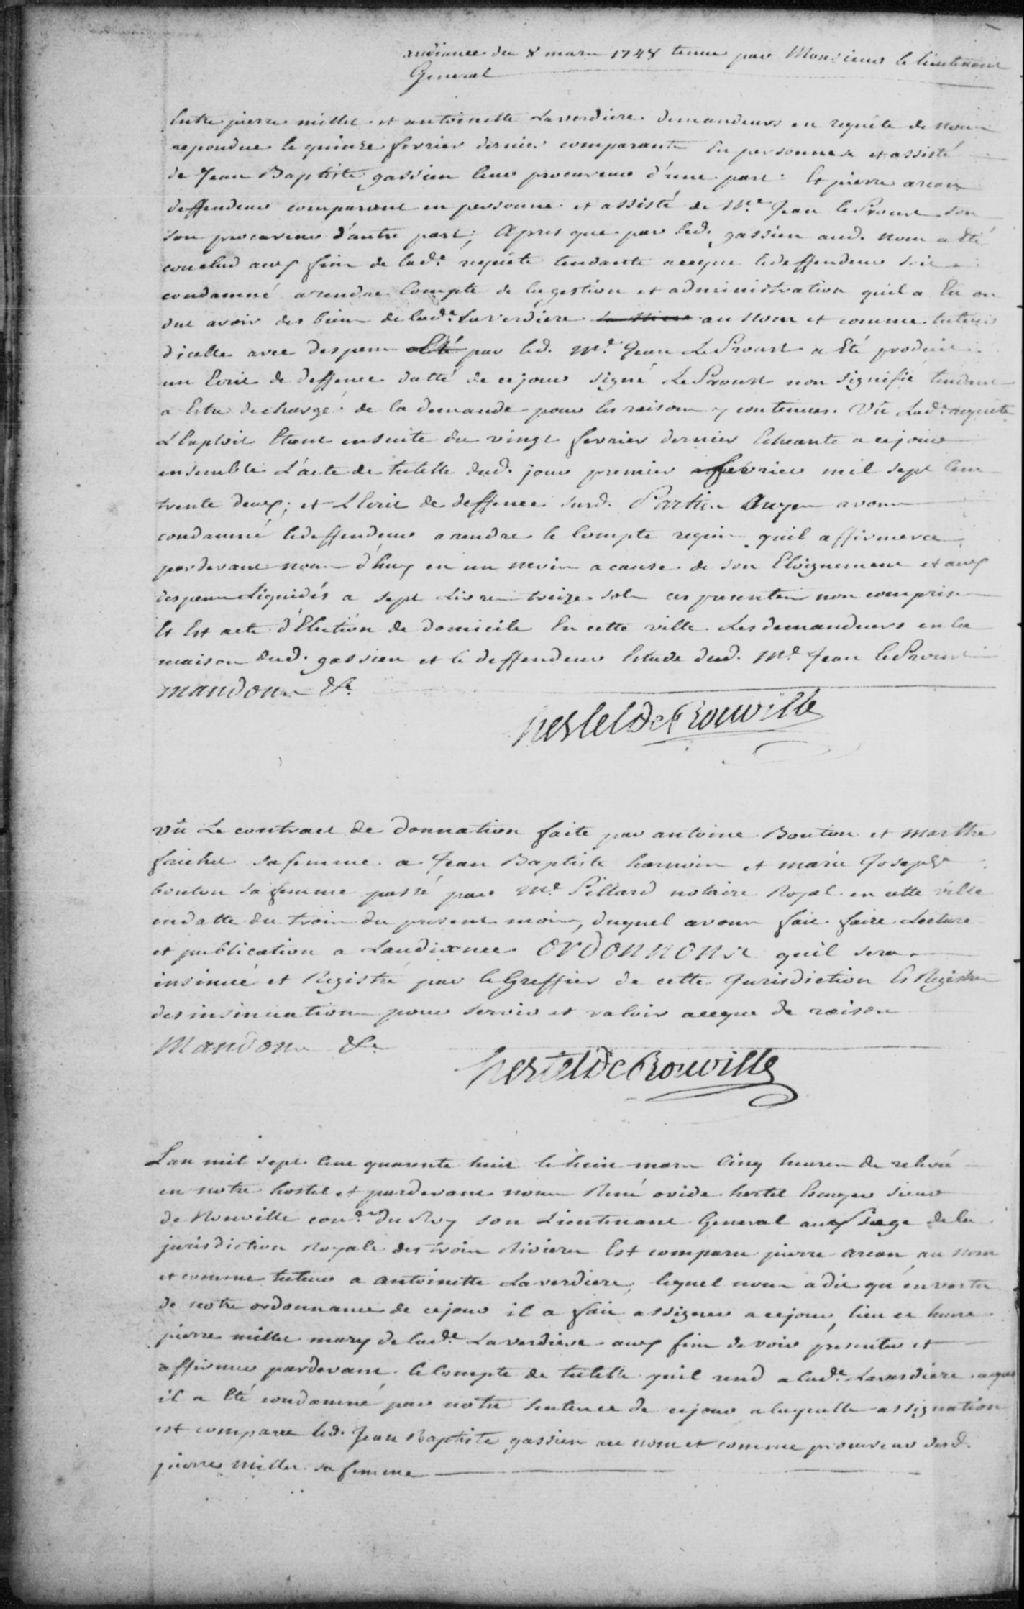 audiance du 8 mars 1748 tenue par Monsieur le lieutenant
General
Entre pierre millet et antoinette Laverdiere demandeurs en requête de nous
repondue le quinze fevrier dernier comparants En personnes et assisté
de Jean Baptiste gassien leur procureur d'une part Et pierre arcan
deffendeur comparant en personne et assisté de Me. Jean leProust son
son procureur d'autre part; Apres que par led. gassien aud. nom a Eté
conclud aux fins de lade. requête tendante aceque ledeffendeur soit
condamné arendre Compte de la gestion et administration quil a Eu ou
du avoir des biens de lade. Laverdiere au nom et comme tuteur
dicelle avec despens par led. Me. Jean LeProust a Eté produit
un Ecrit de deffence datté de cejour signé LeProust non signifié tendant
a Estre dechargé de la demande pour les raisons y contenues. Vû Lade. requête
L'Exploit Etant ensuite du vingt fevrier dernier Echeante a cejour
ensemble L'acte de tutelle dud. jour premier fevrier mil sept Cent
trente deux; et L'Ecrit de deffence susd. Parties Ouyes avons
condamné ledeffendeur arendre le Compte requis quil affirmera
pardevant nous d'huy en un mois acause de son Eloignement et aux
despens Liquidés a sept Livres treize sols ces presentes non comprises
Et Est acte d'Election de domicile En cette ville Les demandeurs en la
maison dud. gassien et le deffendeur Etude dud. Me. Jean leProust
Mandons &c.
hertel De Rouville
Vû Le contract de donnation faite par antoine Bouton et marthe
sa femme a Jean Baptiste et marie Josephe
bouton sa femme passé par Me. Pillard notaire Royal en cette ville
endatte du trois du present mois, duquel avons fait faire Lecture
et publication a Laudiance ORDONNONS quil sera
insinué et Registré par le Greffier de cette Jurisdiction Es Registre
des insinuations pour servir et valoir aceque de raison
Mandons &c.
hertel De Rouville
L'an mil sept Cent quarante huit le huit mars Cinq heures de relevé
en notre hostel et pardevant nous René ovide hertel Ecuyer sieur
de Rouville Coner. du Roy son Lieutenant General au Siege dela
jurisdiction Royale des trois Rivieres Est comparu pierre arcan, au nom
et comme tuteur a antoinette Laverdiere, lequel nous a dit qu'en vertu
de notre ordonnance de cejour il a fait assigner acejour, lieu et heure
pierre millet mary de lade. Laverdiere aux fins de voir presenter et
affirmer pardevant le Compte de tutelle quil rend a lade. Laverdiere aquoy
il a Eté condamné par notre sentence de cejour alaquelle assignation
est comparu led. Jean Baptiste gassien au nom et comme procureur dud.
pierre Millet sa femme